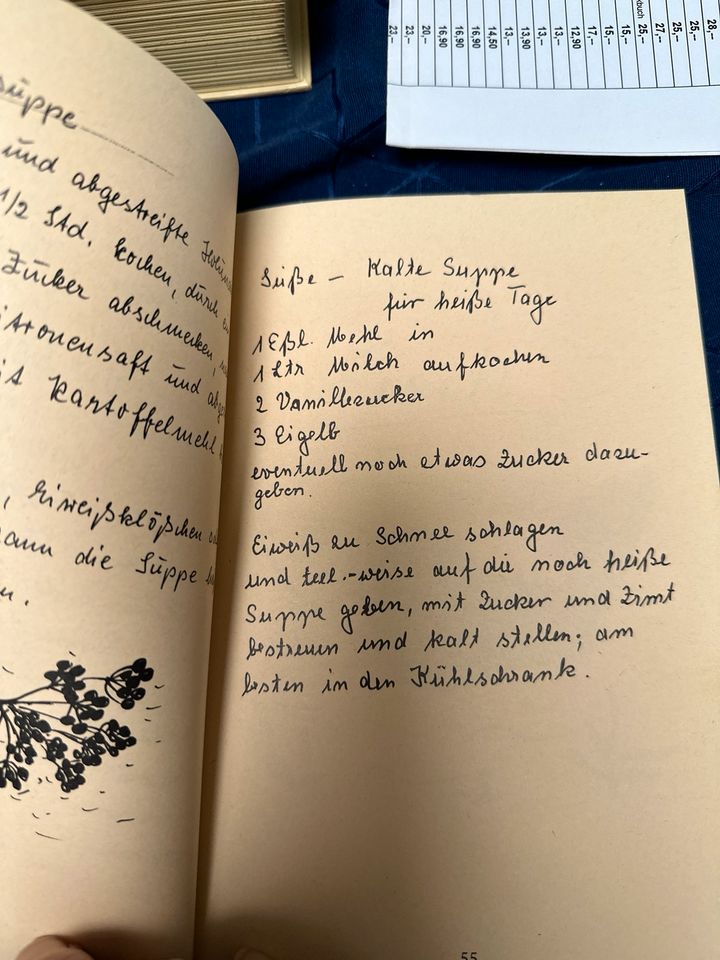 Suppe
und abgestreifte
1/2 Std. kochen, durch
Zucker abschmecken,
und
Kartoffelmehl
Eiweißklößchen
die Suppe
Süße - Kalte Suppe
für heiße Tage
1 Eßl. Mehl in
1 Ltr Milch aufkochen
2 Vanillezucker
3 Eigelb
eventuell noch etwas Zucker dazu-
geben.
Eiweiß zu Schnee schlagen
und teel.-weise auf die noch heiße
Suppe geben, mit Zucker und Zimt
bestreuen und kalt stellen; am
besten in den Kühlschrank.
55
23,-
23,-
20,-
16,90
16,90
16,90
14,50
13,-
13,90
13,-
13,-
12,90
17,-
15,-
15,-
25,-
27,-
25,-
25,-
28,-